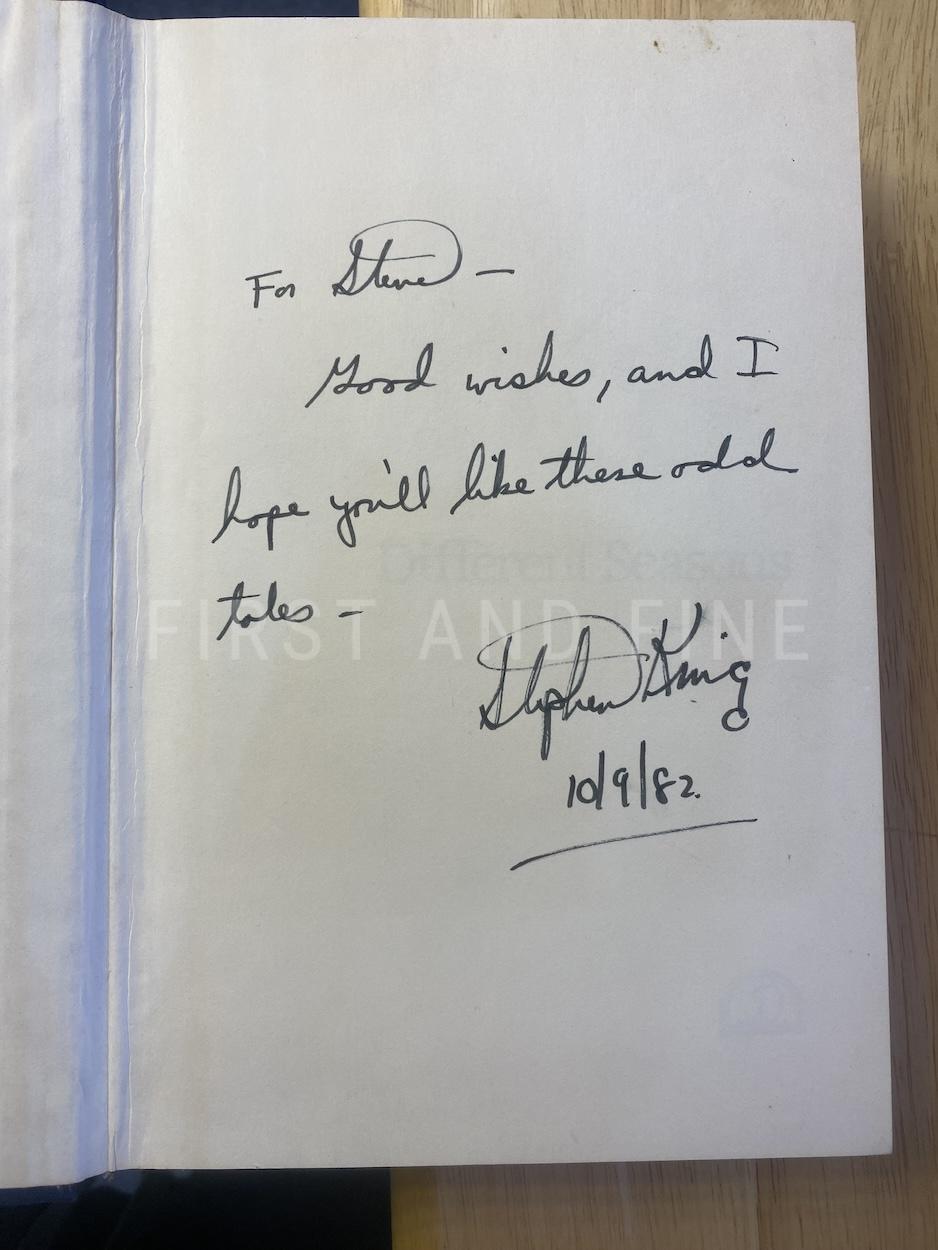 For Steve –
Good wishes, and I
hope you'll like these odd
Different Seasons
tales –
FIRST AND FINE
Stephen King
10/9/82.